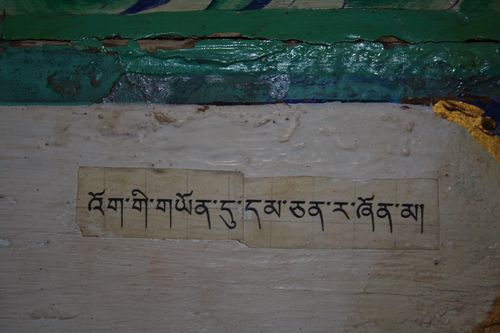 འོག་གི་གཡོན་དུ་དམ་ཅན་ར་ཞོན་མ།